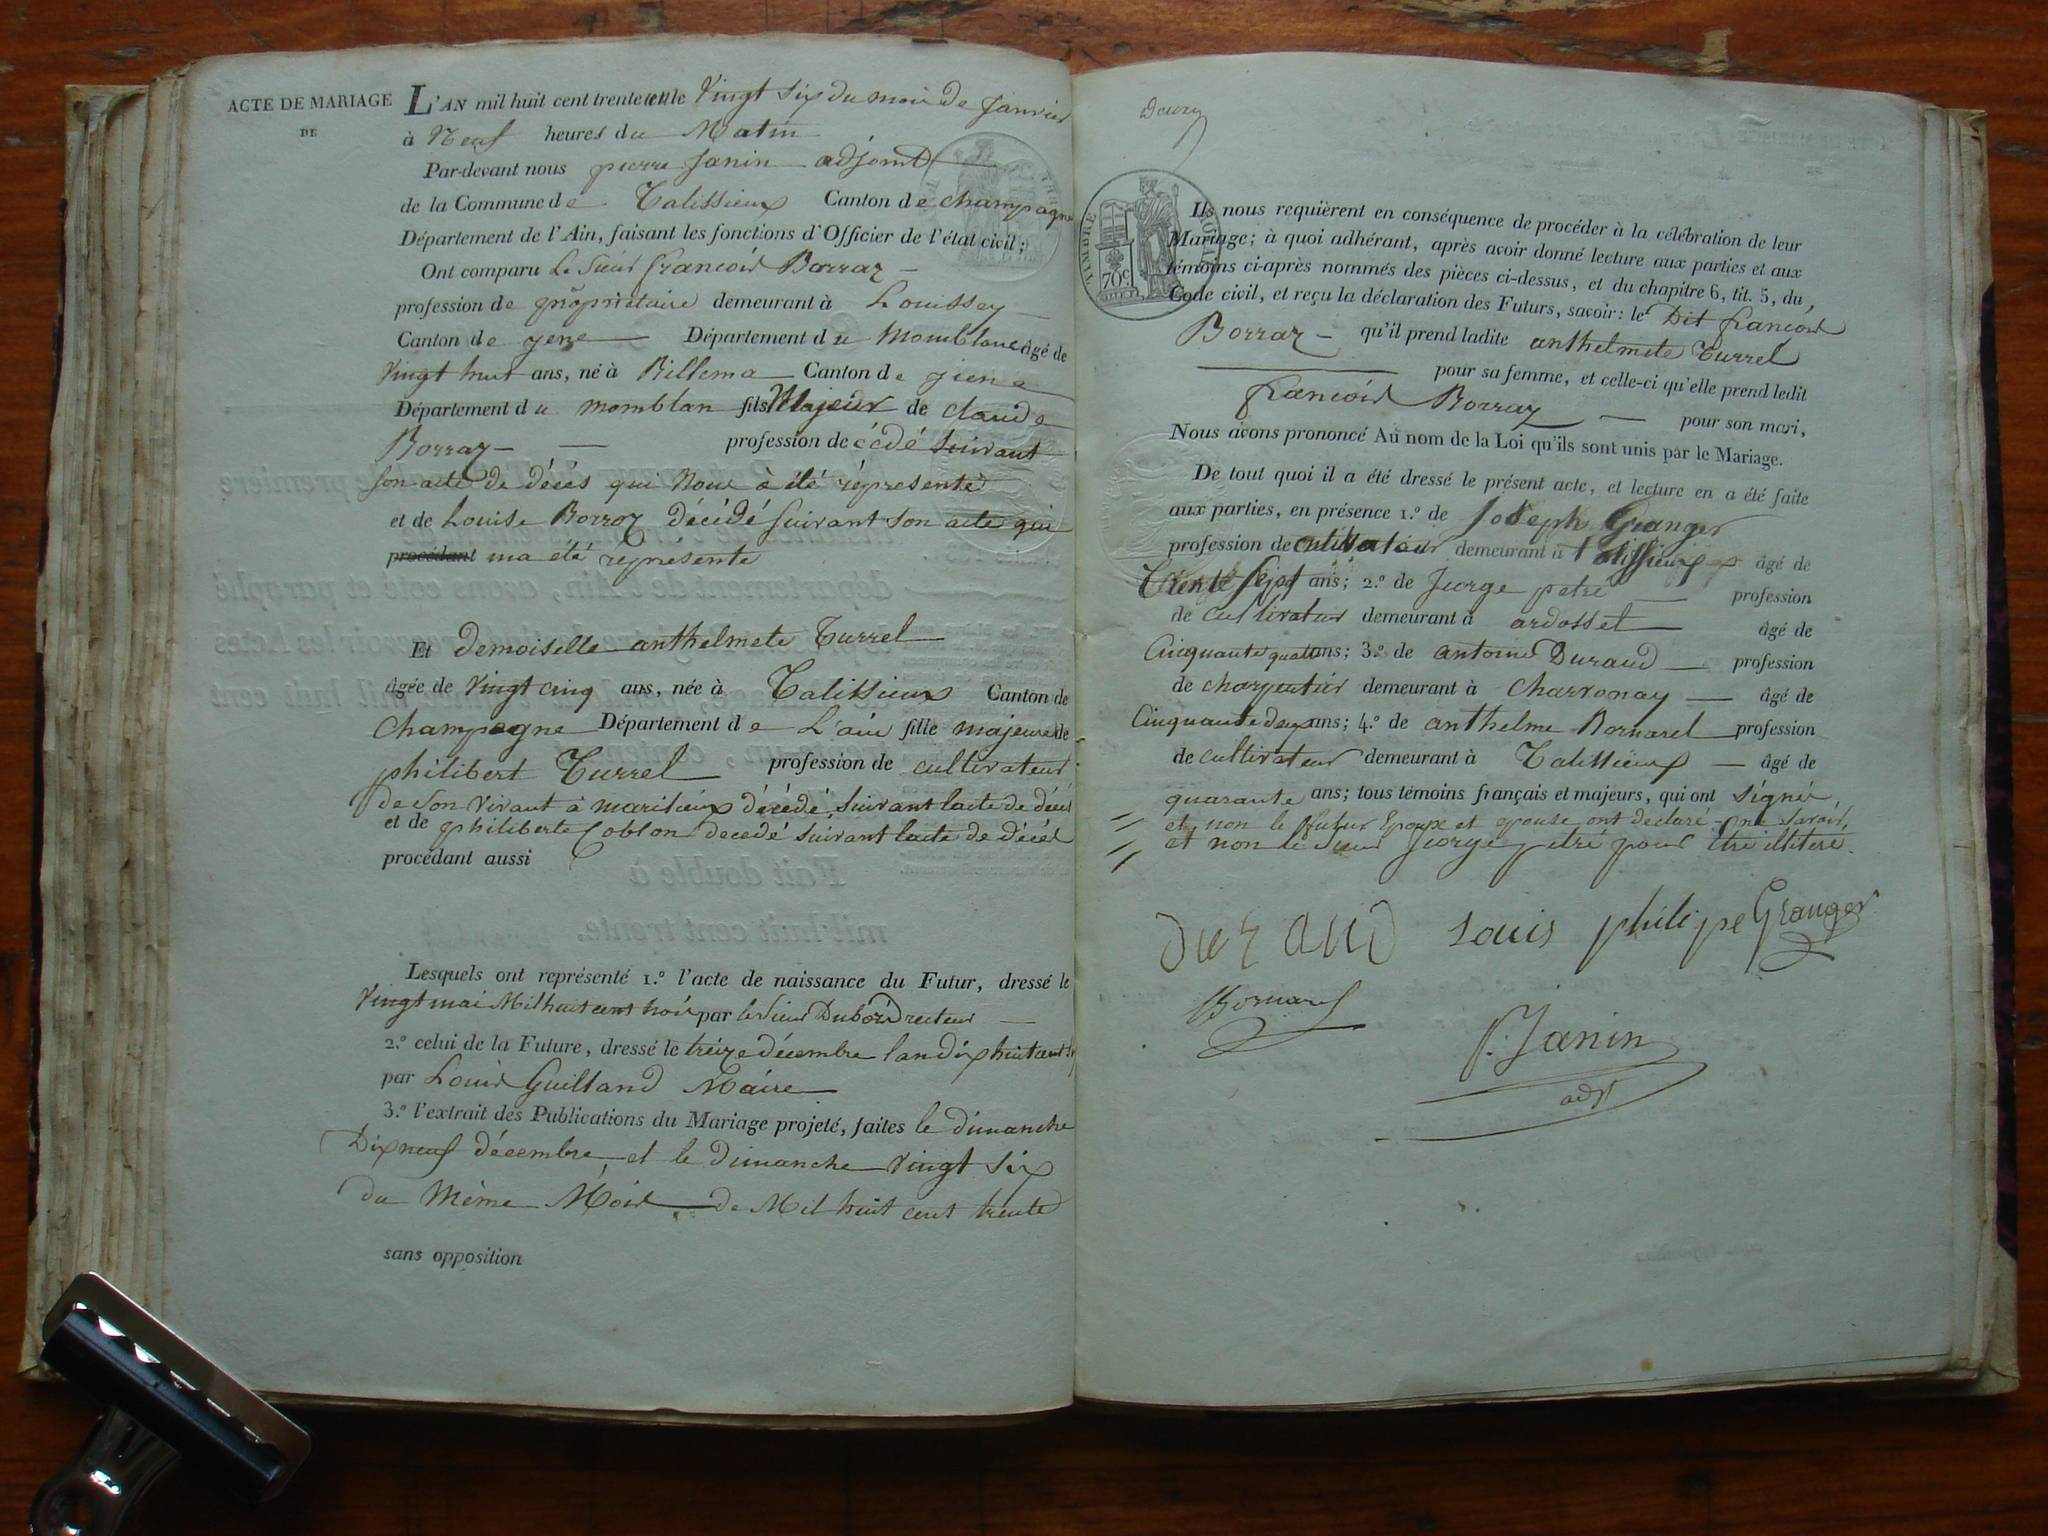 ACTE DE MARIAGE
DE
L'AN mil huit cent trente un le Vingt Six du mois de Janvier
à Neuf heures du Matin
Par-devant nous pierre Janin adjoint
de la Commune de Talissieux Canton de champagne
Département de l'Ain, faisant les fonctions d'Officier de l'état civil;
Ont comparu Le Sieur francois Borraz
profession de propriétaire demeurant à Louissey
Canton de Département du Momblanc âgé de
Vingt huit ans, né à Billema Canton de
Département du momblan fils Majeur de claude
Borraz profession de cédé suivant
son acte de décès qui Nous à été réprésenté
et de Louise Borroz décédé suivant son acte qui
procédant ma été réprésente
Et demoiselle anthelmete Turrel
âgée de vingt cinq ans, née à Talissieux Canton de
Champagne Département de L'ain fille majeure de
philibert Turrel profession de cultivateur
de son vivant à décédé suivant lacte de décès
et de philiberte Coblon decedé suivant lacte de décès
procédant aussi
Lesquels ont représenté 1.º l'acte de naissance du Futur, dressé le
Vingt mai Mil huit cent trois par le Sieur Dubois recteur
2.º celui de la Future, dressé le treize décembre lan dix huit cent
par Louis Guilland Maire
3.º l'extrait des Publications du Mariage projeté, faites le dimanche
Dix neuf décembre, et le dimanche vingt six
du Même Mois de Mil huit cent trente
sans opposition
TIMBRE ROYAL
70c.
Ils nous requièrent en conséquence de procéder à la célébration de leur
Mariage; à quoi adhérant, après avoir donné lecture aux parties et aux
témoins ci-après nommés des pièces ci-dessus, et du chapitre 6, tit. 5, du
Code civil, et reçu la déclaration des Futurs, savoir: le Dit francois
Borraz qu'il prend ladite anthelmete Turrel
pour sa femme, et celle-ci qu'elle prend ledit
francois Borraz pour son mari,
Nous avons prononcé Au nom de la Loi qu'ils sont unis par le Mariage.
De tout quoi il a été dressé le présent acte, et lecture en a été faite
aux parties, en présence 1.º de Joseph Granger
profession de cultivateur demeurant à talissieux âgé de
Trente Sept ans; 2.º de Jeorge petré profession
de cultivateur demeurant à ardosset âgé de
Cinquante quatre ans; 3.º de antoine Duraud profession
de charpentier demeurant à Charvonay âgé de
Cinquante deux ans; 4.º de anthelme Bornarel profession
de cultivateur demeurant à Talissieux âgé de
quarante ans; tous témoins français et majeurs, qui ont signér,
et non le futur Epoux et epouse ont declaré ne Savoir,
et non le Sieur Jeorge petré pour etre illiteré.
Duraud Louis philippe Granger
Bornarel
P. Janin
adj